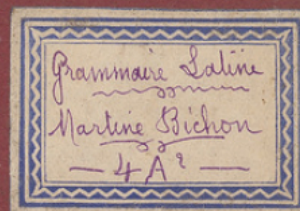 Grammaire Latine
Martine Bichon
4 A²